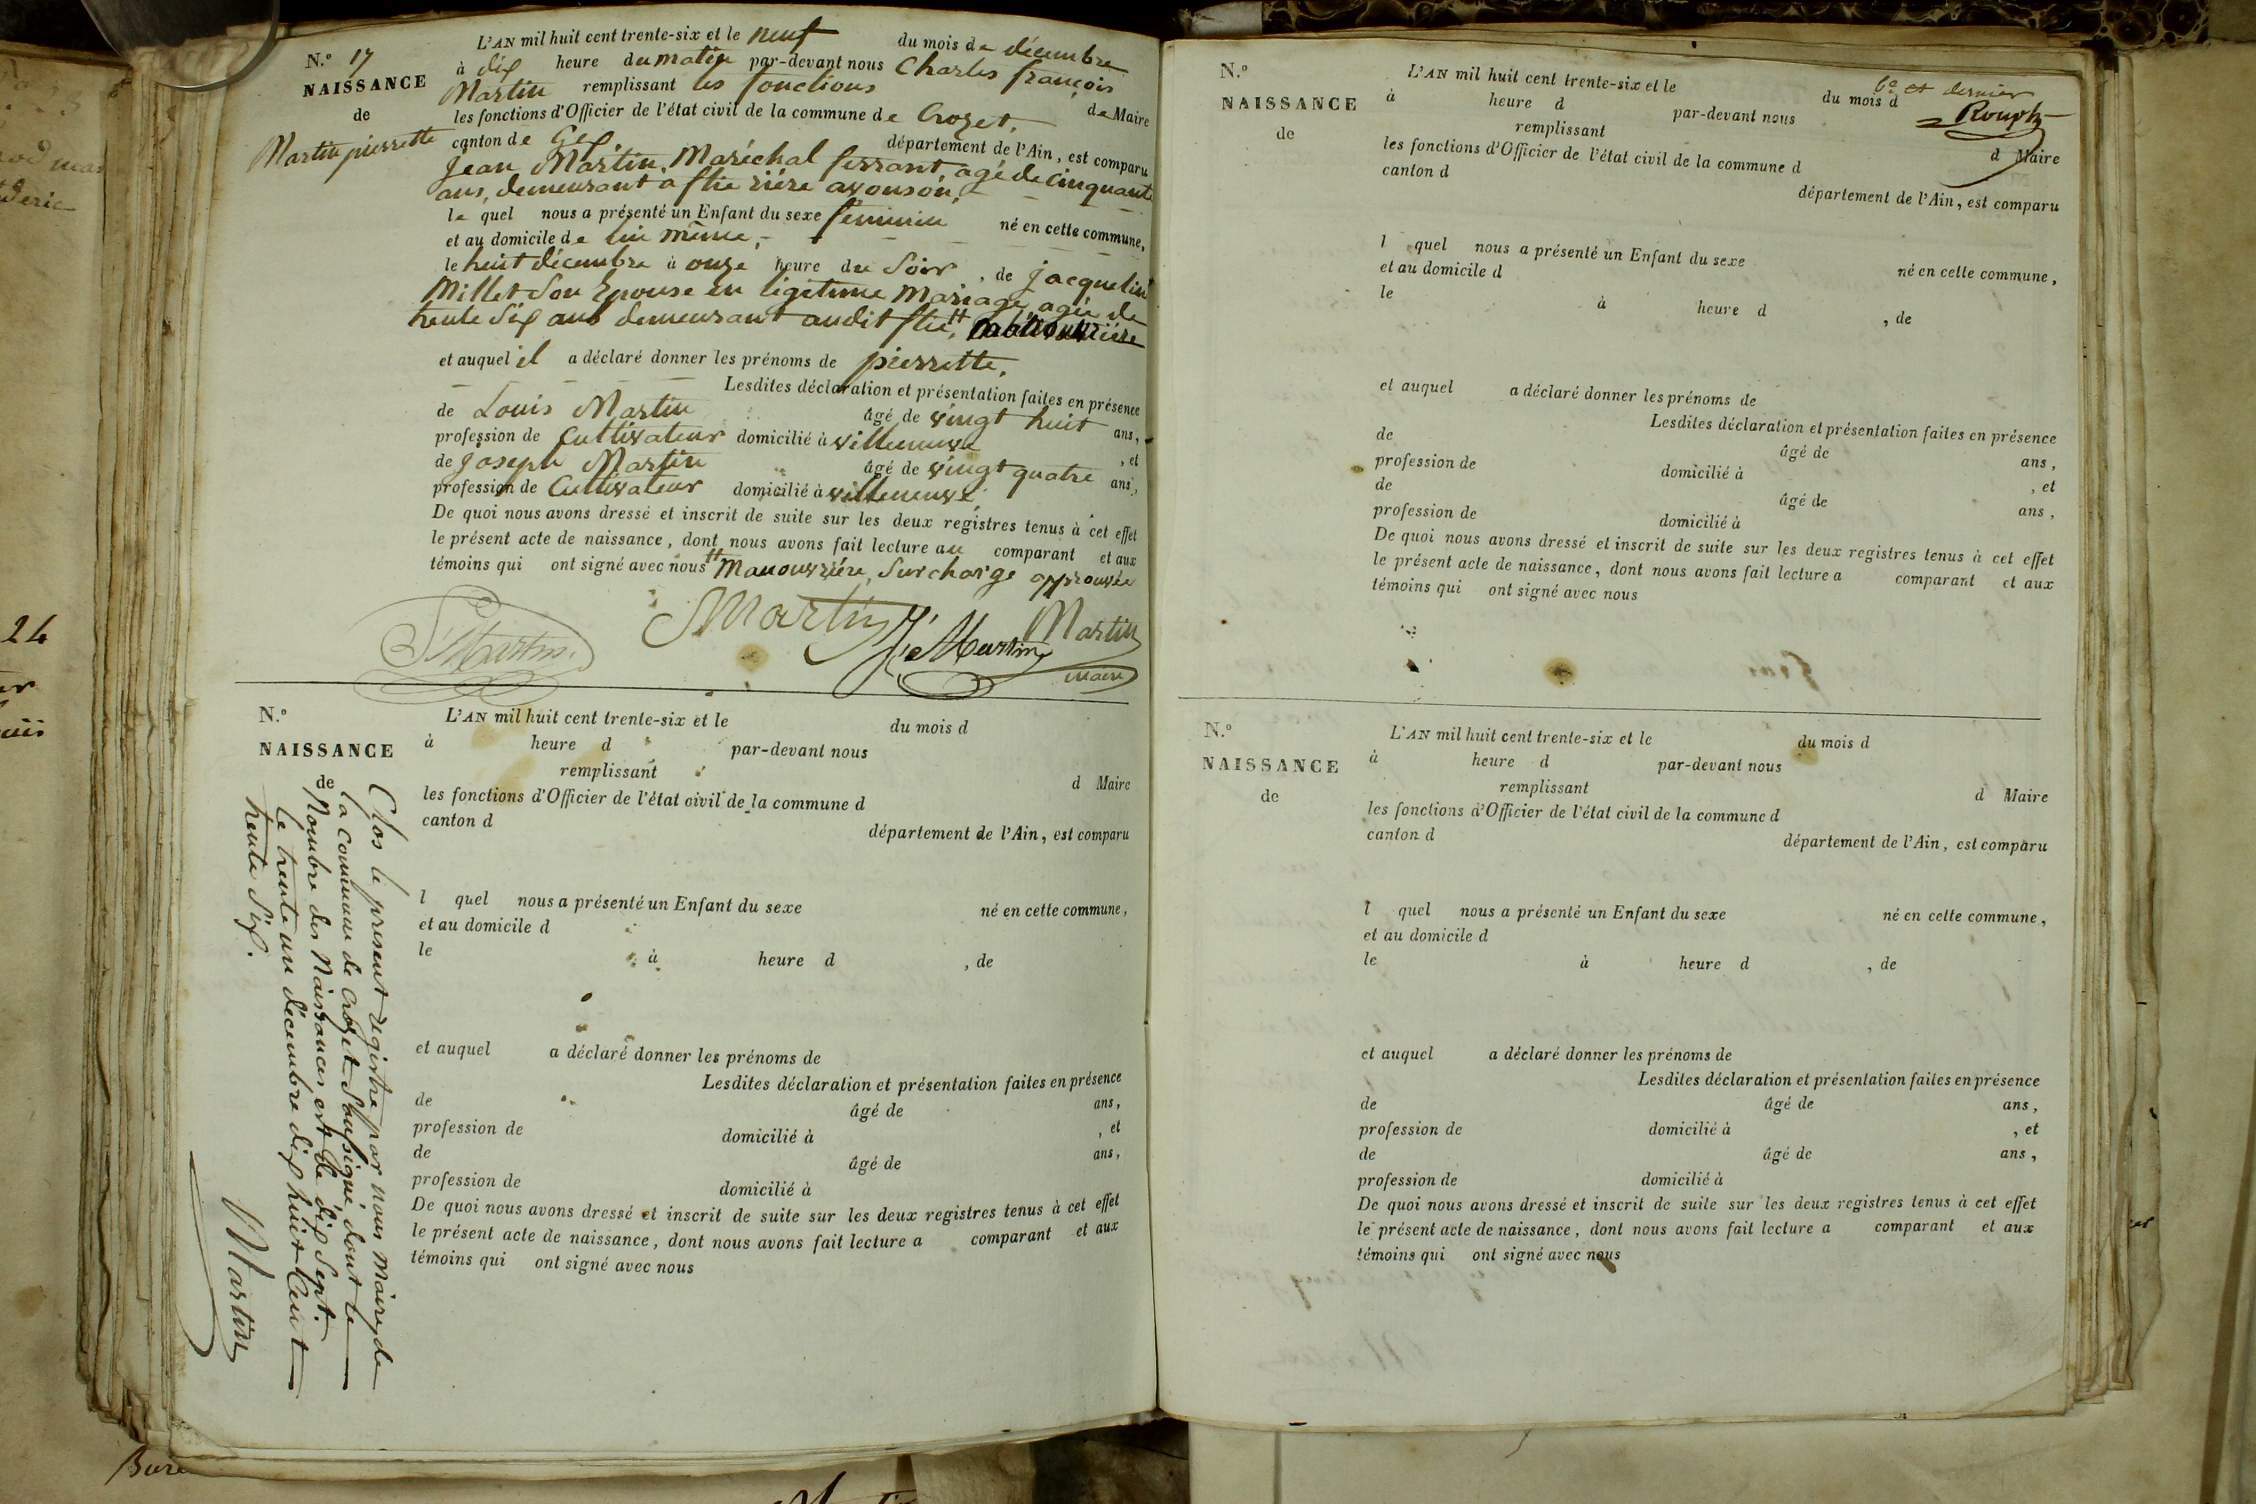 N.º 17
NAISSANCE
de
Martin pierrette
L'AN mil huit cent trente-six et le neuf du mois de décembre
à dix heure du matin par-devant nous Charles françois
Martin remplissant les fonctions de Maire
les fonctions d'Officier de l'état civil de la commune de Crozet,
canton de Gex département de l'Ain, est comparu
Jean Martin, Maréchal ferrant, agé de cinquante
ans, demeurant à flie rière avouson,
le quel nous a présenté un Enfant du sexe féminin né en cette commune,
et au domicile de lui même,
le huit décembre à onze heure du Soir, de jacqueline
Millet Son Epouse en légitime Mariage, agée de
trente Six ans demeurant audit flie,
et auquel il a déclaré donner les prénoms de pierrette.
Lesdites déclaration et présentation faites en présence
de Louis Martin âgé de vingt huit ans,
profession de Cultivateur domicilié à villeneuve, et
de joseph Martin âgé de vingt quatre ans,
profession de Cultivateur domicilié à villeneuve
De quoi nous avons dressé et inscrit de suite sur les deux registres tenus à cet effet
le présent acte de naissance, dont nous avons fait lecture au comparant et aux
témoins qui ont signé avec nous # Manouvrière, Surcharge approuvée
Martin
Martin
Martin
Martin
maire
N.º
NAISSANCE
de
L'AN mil huit cent trente-six et le du mois d
à heure d par-devant nous
remplissant d Maire
les fonctions d'Officier de l'état civil de la commune d
canton d département de l'Ain, est comparu
l quel nous a présenté un Enfant du sexe né en cette commune,
et au domicile d
le à heure d , de
et auquel a déclaré donner les prénoms de
Lesdites déclaration et présentation faites en présence
de âgé de ans,
profession de domicilié à , et
de âgé de ans,
profession de domicilié à
De quoi nous avons dressé et inscrit de suite sur les deux registres tenus à cet effet
le présent acte de naissance, dont nous avons fait lecture a comparant et aux
témoins qui ont signé avec nous
Clos le présent registre par nous Maire de
la Commune de Crozet Soussigné, dont le
Nombre des Naissances est de dix Sept.
Le trente un décembre dix huit Cent
trente Six.
Martin
6e et dernier
N.º
NAISSANCE
de
L'AN mil huit cent trente-six et le du mois d
à heure d par-devant nous
remplissant d Maire
les fonctions d'Officier de l'état civil de la commune d
canton d département de l'Ain, est comparu
l quel nous a présenté un Enfant du sexe né en cette commune,
et au domicile d
le à heure d , de
et auquel a déclaré donner les prénoms de
Lesdites déclaration et présentation faites en présence
de âgé de ans,
profession de domicilié à , et
de âgé de ans,
profession de domicilié à
De quoi nous avons dressé et inscrit de suite sur les deux registres tenus à cet effet
le présent acte de naissance, dont nous avons fait lecture a comparant et aux
témoins qui ont signé avec nous
N.º
NAISSANCE
de
L'AN mil huit cent trente-six et le du mois d
à heure d par-devant nous
remplissant d Maire
les fonctions d'Officier de l'état civil de la commune d
canton d département de l'Ain, est comparu
l quel nous a présenté un Enfant du sexe né en cette commune,
et au domicile d
le à heure d , de
et auquel a déclaré donner les prénoms de
Lesdites déclaration et présentation faites en présence
de âgé de ans,
profession de domicilié à , et
de âgé de ans,
profession de domicilié à
De quoi nous avons dressé et inscrit de suite sur les deux registres tenus à cet effet
le présent acte de naissance, dont nous avons fait lecture a comparant et aux
témoins qui ont signé avec nous
24